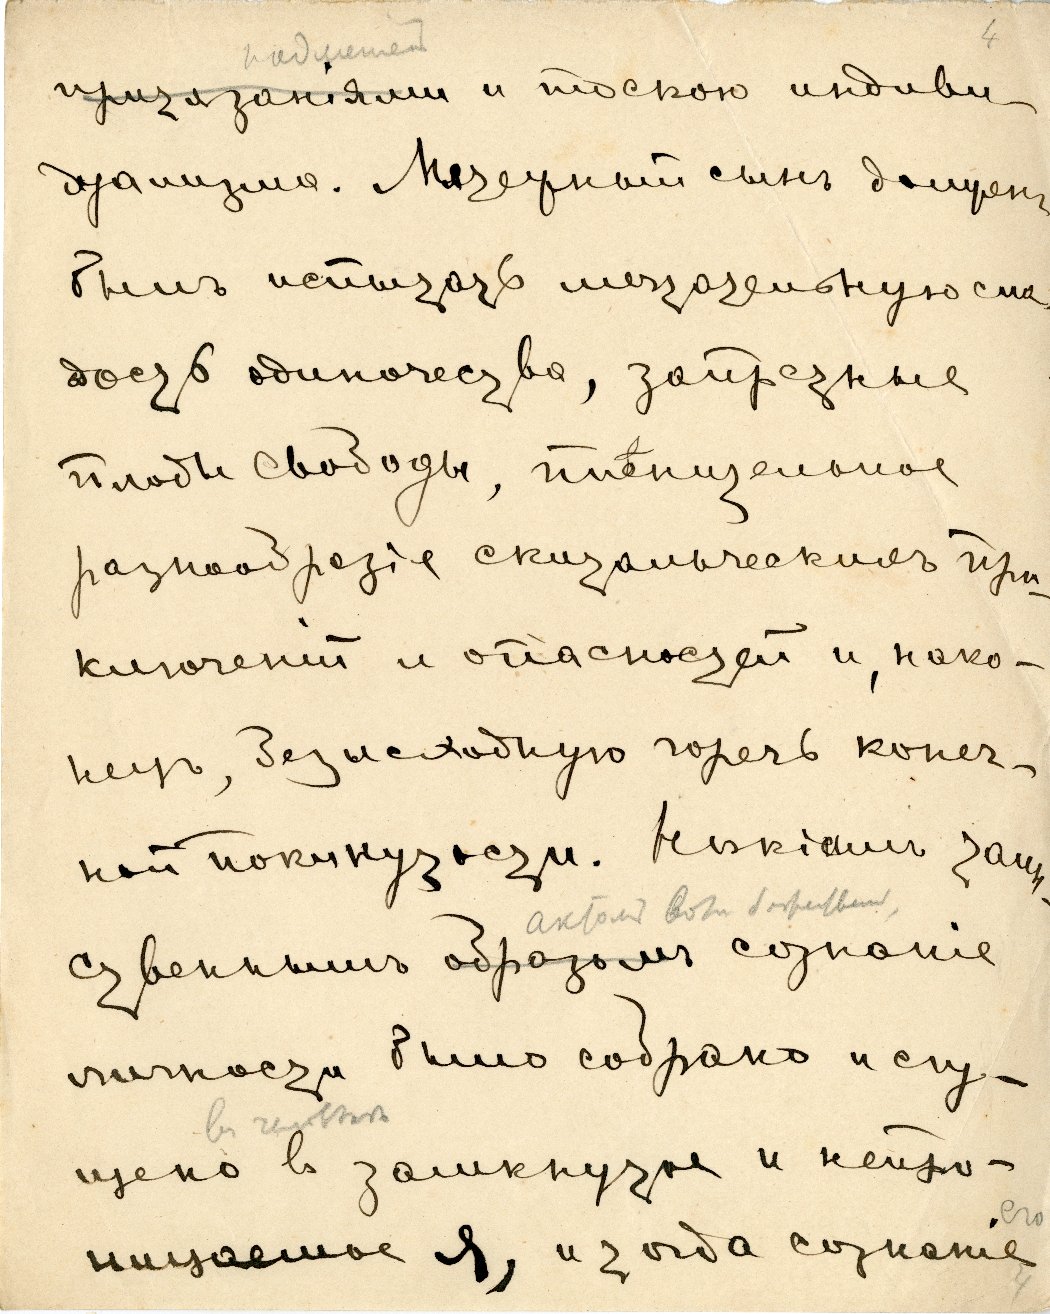 4
притязаніями и тоскою индиви-
дуализма. Мятежный сынъ долженъ
былъ испытать мечтательную сла-
дость одиночества, запретные
плоды свободы, плѣнительное
разнообразіе скитальческихъ при-
ключеній и опасностей и, нако-
нецъ, безысходную горечь конеч-
ной покинутости. Нѣкіимъ таин-
ственнымъ образомъ сознаніе
личности было собрано и сгу-
щено въ замкнутое и непро-
его
ницаемое Я, и тогда сознаніе
4